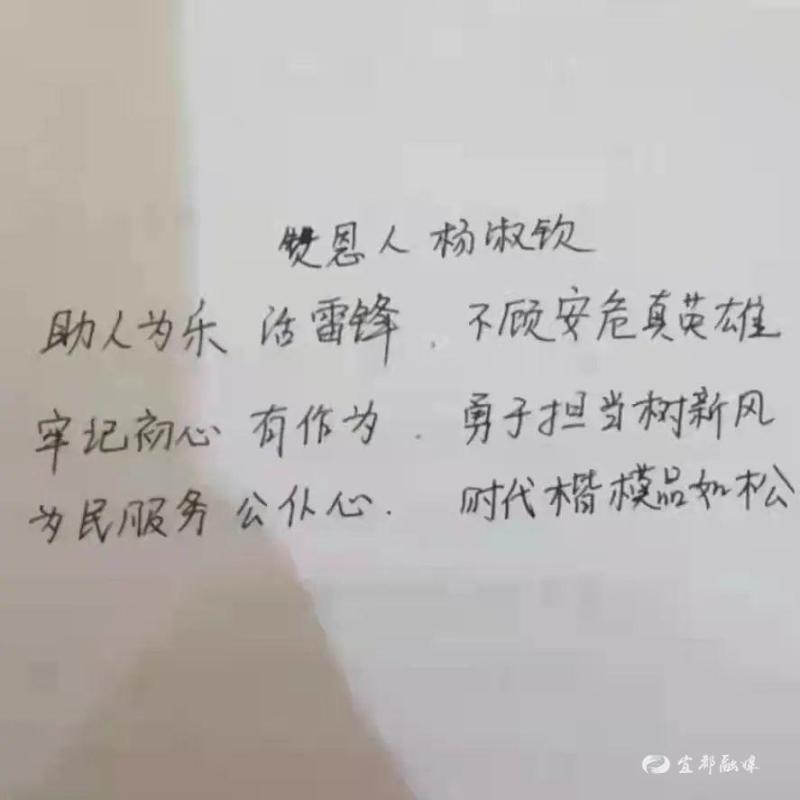 赞恩人 杨淑钦
助人为乐 活雷锋. 不顾安危真英雄
牢记初心 有作为. 勇于担当树新风
为民服务 公仆心. 时代楷模品如松
宜都融媒